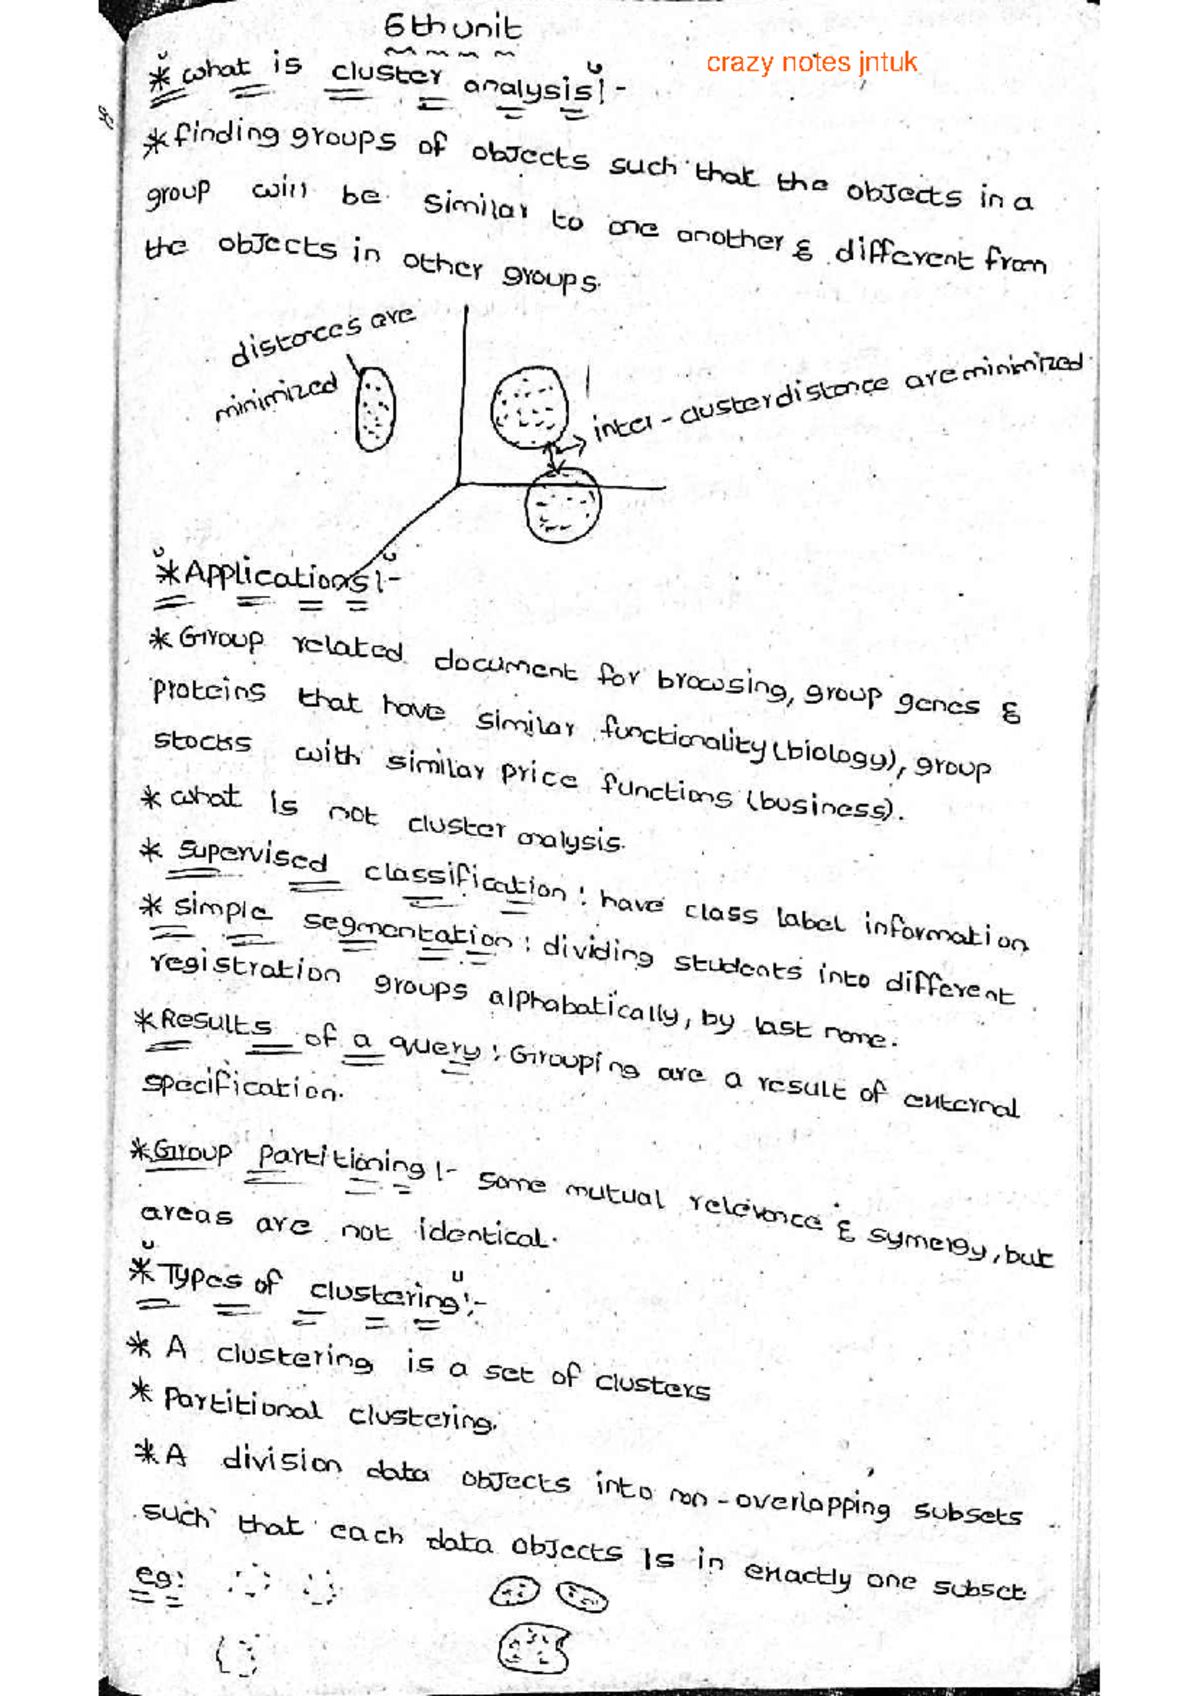 6th unit
crazy notes jntuk
* what is cluster analysis:-
* finding groups of objects such that the objects in a
group will be similar to one another & different from
the objects in other groups.
distances are
minimized
inter-cluster distance are minimized
* Applications:-
* Group related document for browsing, group genes &
proteins that have similar functionality (biology), group
stocks with similar price functions (business).
* what is not cluster analysis.
* supervised classification: have class label information
* simple segmentation: dividing students into different
registration groups alphabatically, by last name.
* Results of a query: Grouping are a result of external
specification.
* Group partitioning:- some mutual relevance & symergy, but
areas are not identical.
* Types of clustering:-
* A clustering is a set of clusters
* partitional clustering.
* A division data objects into non-overlapping subsets
such that each data objects is in exactly one subset
eg: